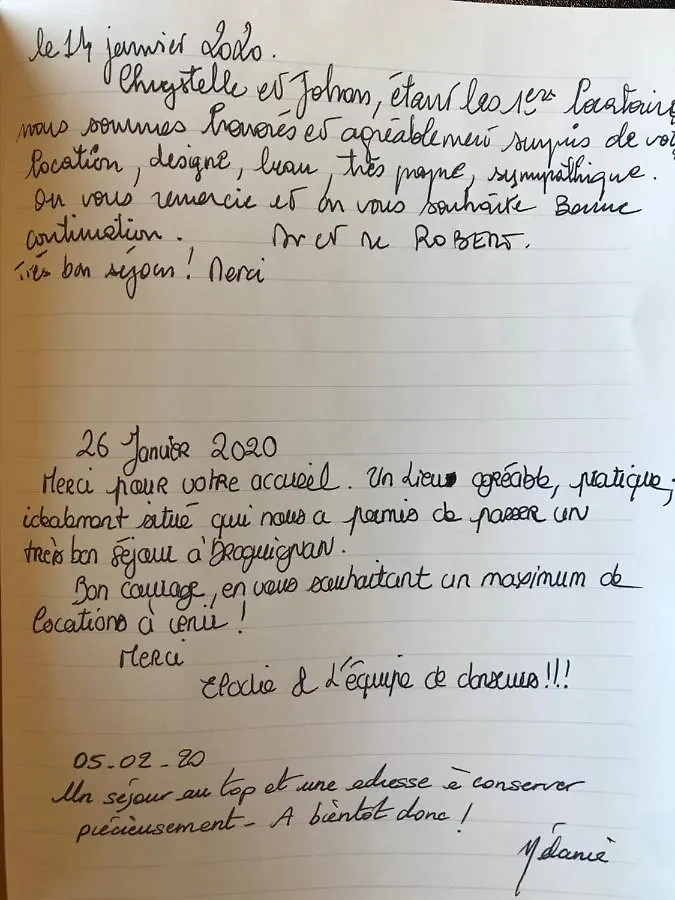 le 14 janvier 2020.
Chrystelle et Johan, étant les 1ers locataires
nous sommes honorés et agréablement surpris de vot
location, designe, beau, très propre, sympathique.
On vous remercie et on vous souhaite Bonne
continuation. Mr et Me ROBERT.
Très bon séjour ! Merci
26 Janvier 2020
Merci pour votre accueil. Un lieu agréable, pratique,
idéalement situé qui nous a permis de passer un
très bon séjour à DRAGUIGNAN.
Bon courage, en vous souhaitant un maximum de
locations à venir !
Merci
Elodie & L'équipe de danseurs !!!
05-02-20
Un séjour au top et une adresse à conserver
précieusement - A bientôt donc !
Mélanie